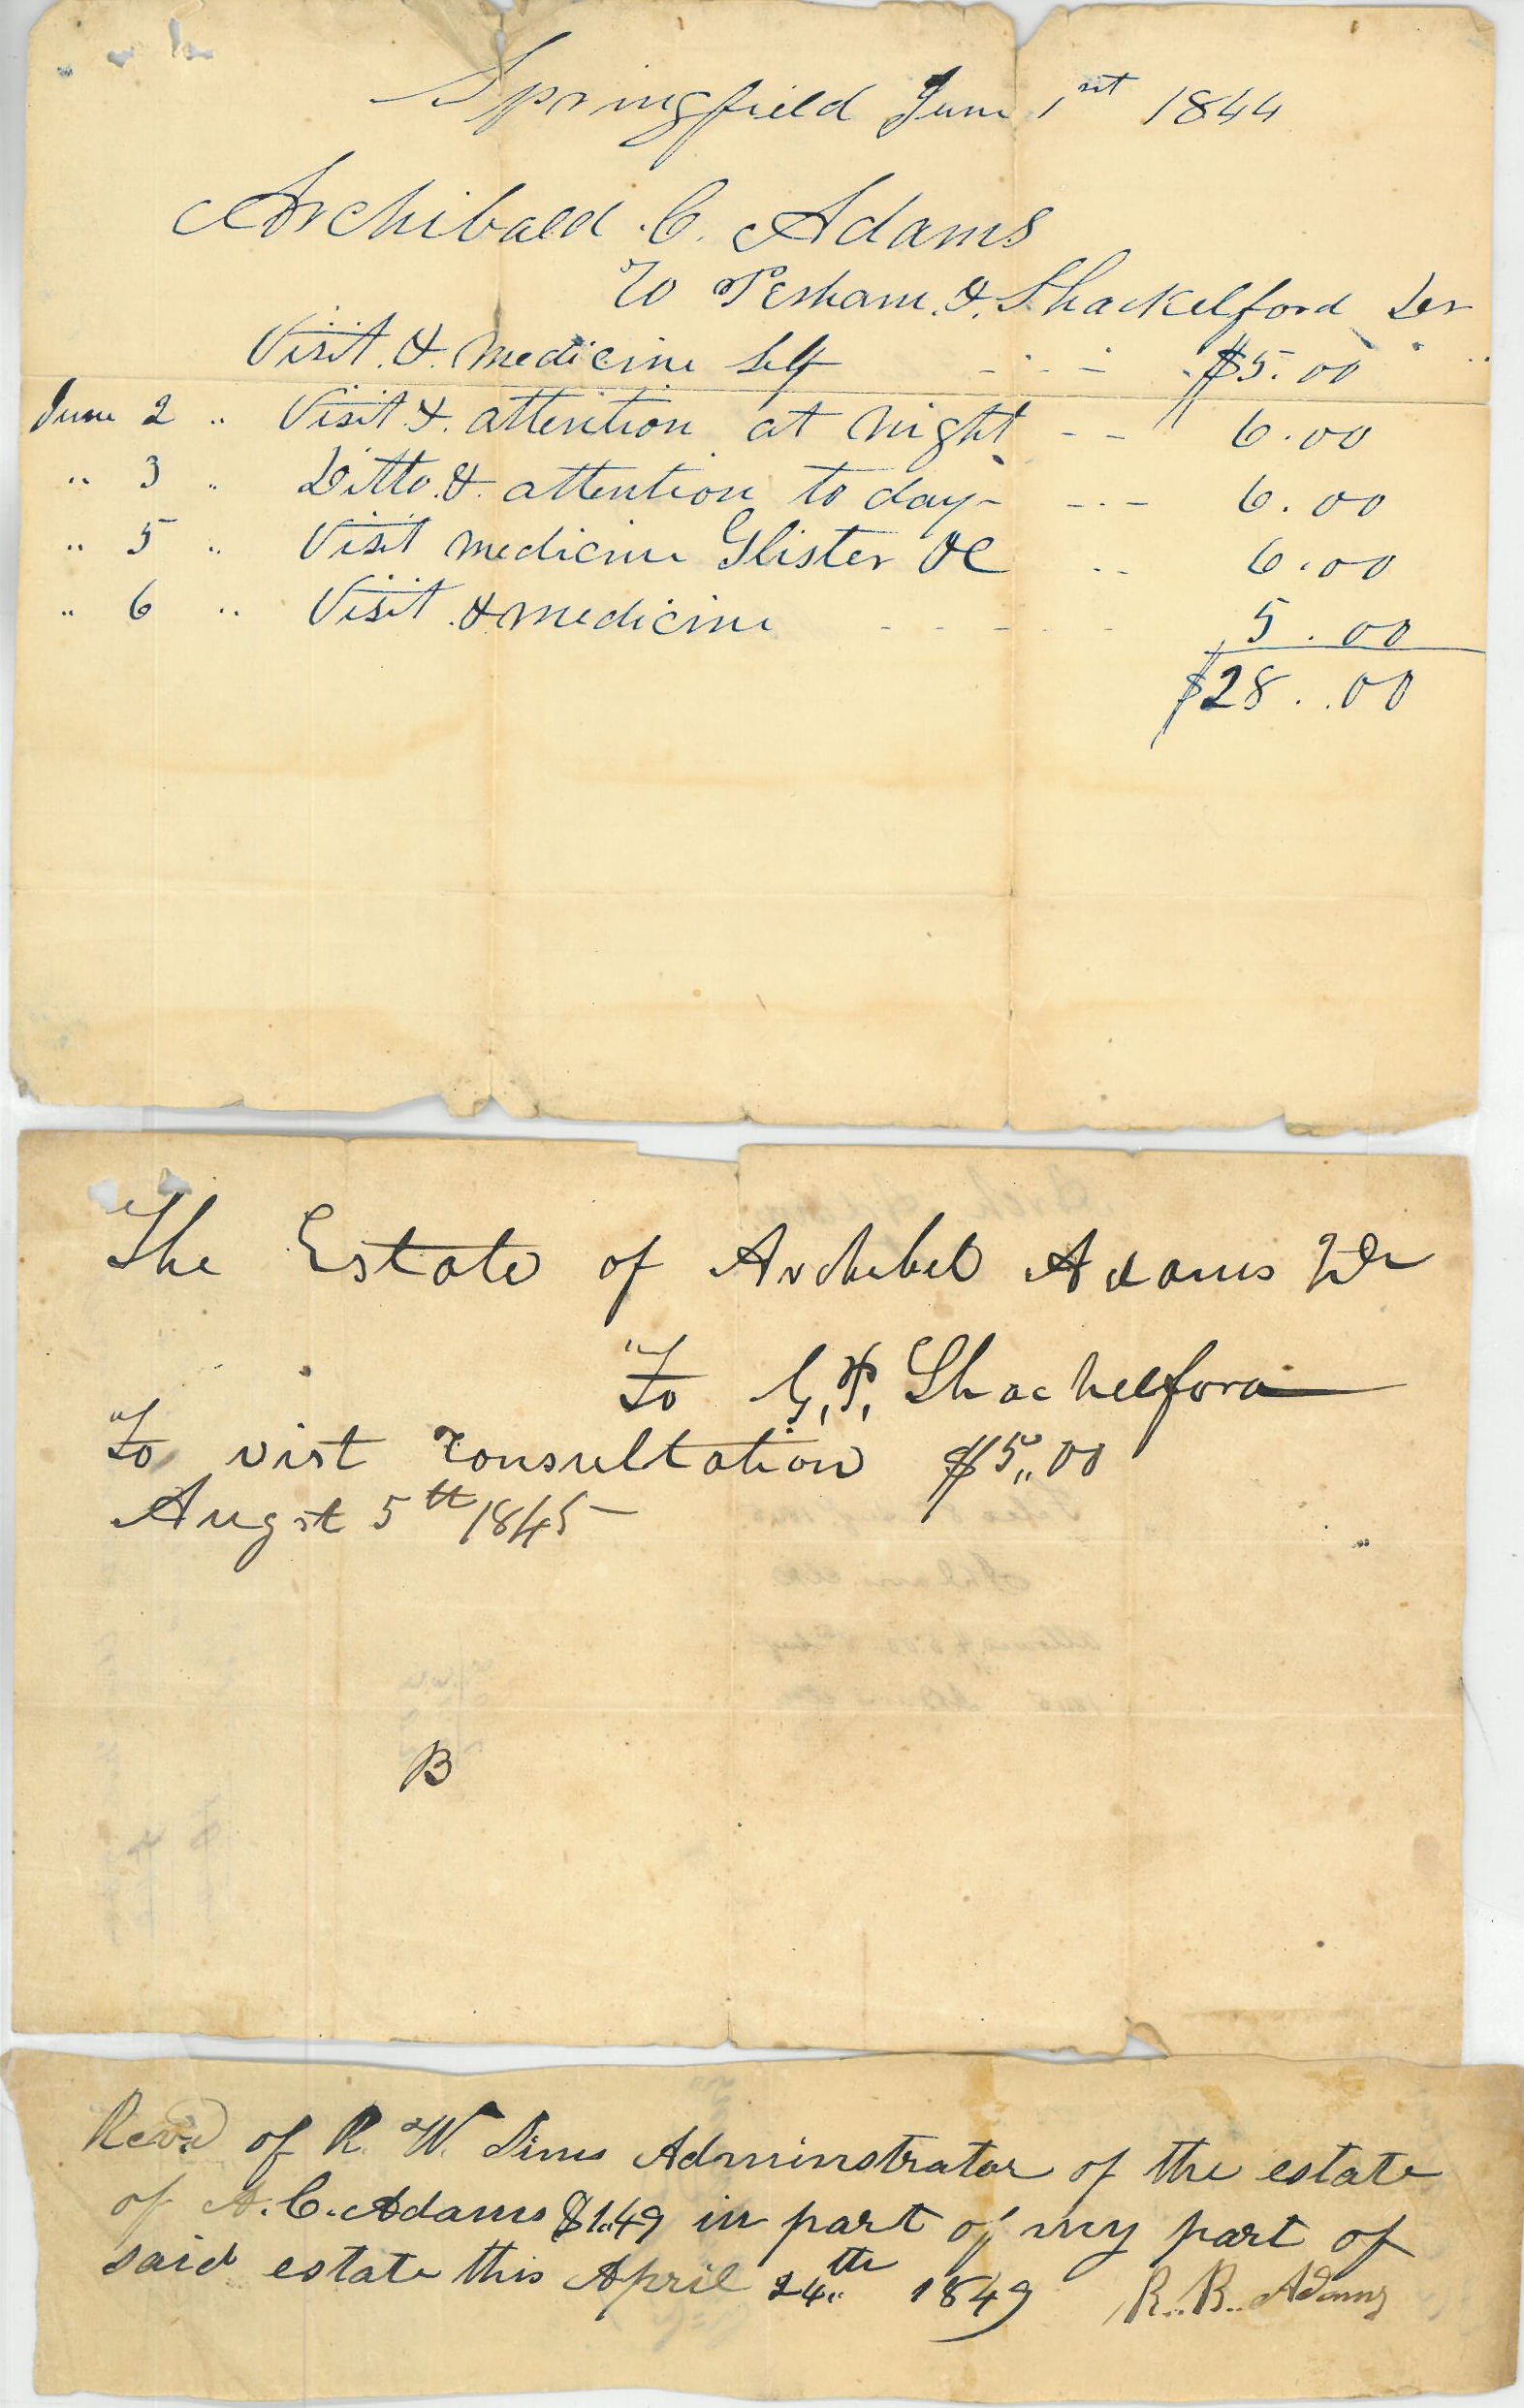 Springfield June 1st 1844
Archibald C. Adams
To & Shackelford Der
Visit & Medicine Self - - - $5.00
June 2 " Visit & attention at Night - - 6.00
" 3 " Ditto & attention to day - - - 6.00
" 5 " Visit Medicine Glister &C - - 6.00
" 6 " Visit & Medicine - - - - - 5.00
$28..00
The Estate of Adams Dr
To G, P, Shackelford
To visit consultation $5,,00
Augst 5th 1845
B
Recvd of R. W. Sims Adminstrator of the estate
of A. C. Adams $1.49 in part of my part of
said estate this April 24th 1849 R.. B.. Adams